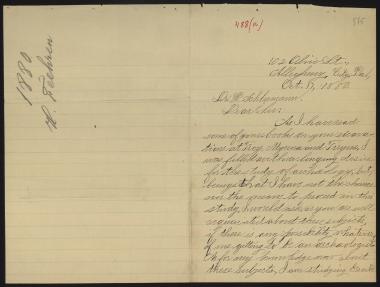 488(a)
1880
102 Ohio St.,
Allegheny City, Pa.,
Oct. 1880
Dr. H. Schliemann,
Dear Sir:
As I have read
some of your books on your excava-
tions at Troy, Mycenae and Tiryns, I
was filled with a longing desire
for the study of archaeology, but,
being that I have not the chance
nor the means to proceed in this
study, I would ask you as well
acquainted about these subjects,
if there is any possibility whatever
of me getting to be an archaeologist.
As for my knowledge now about
these subjects, I am studying